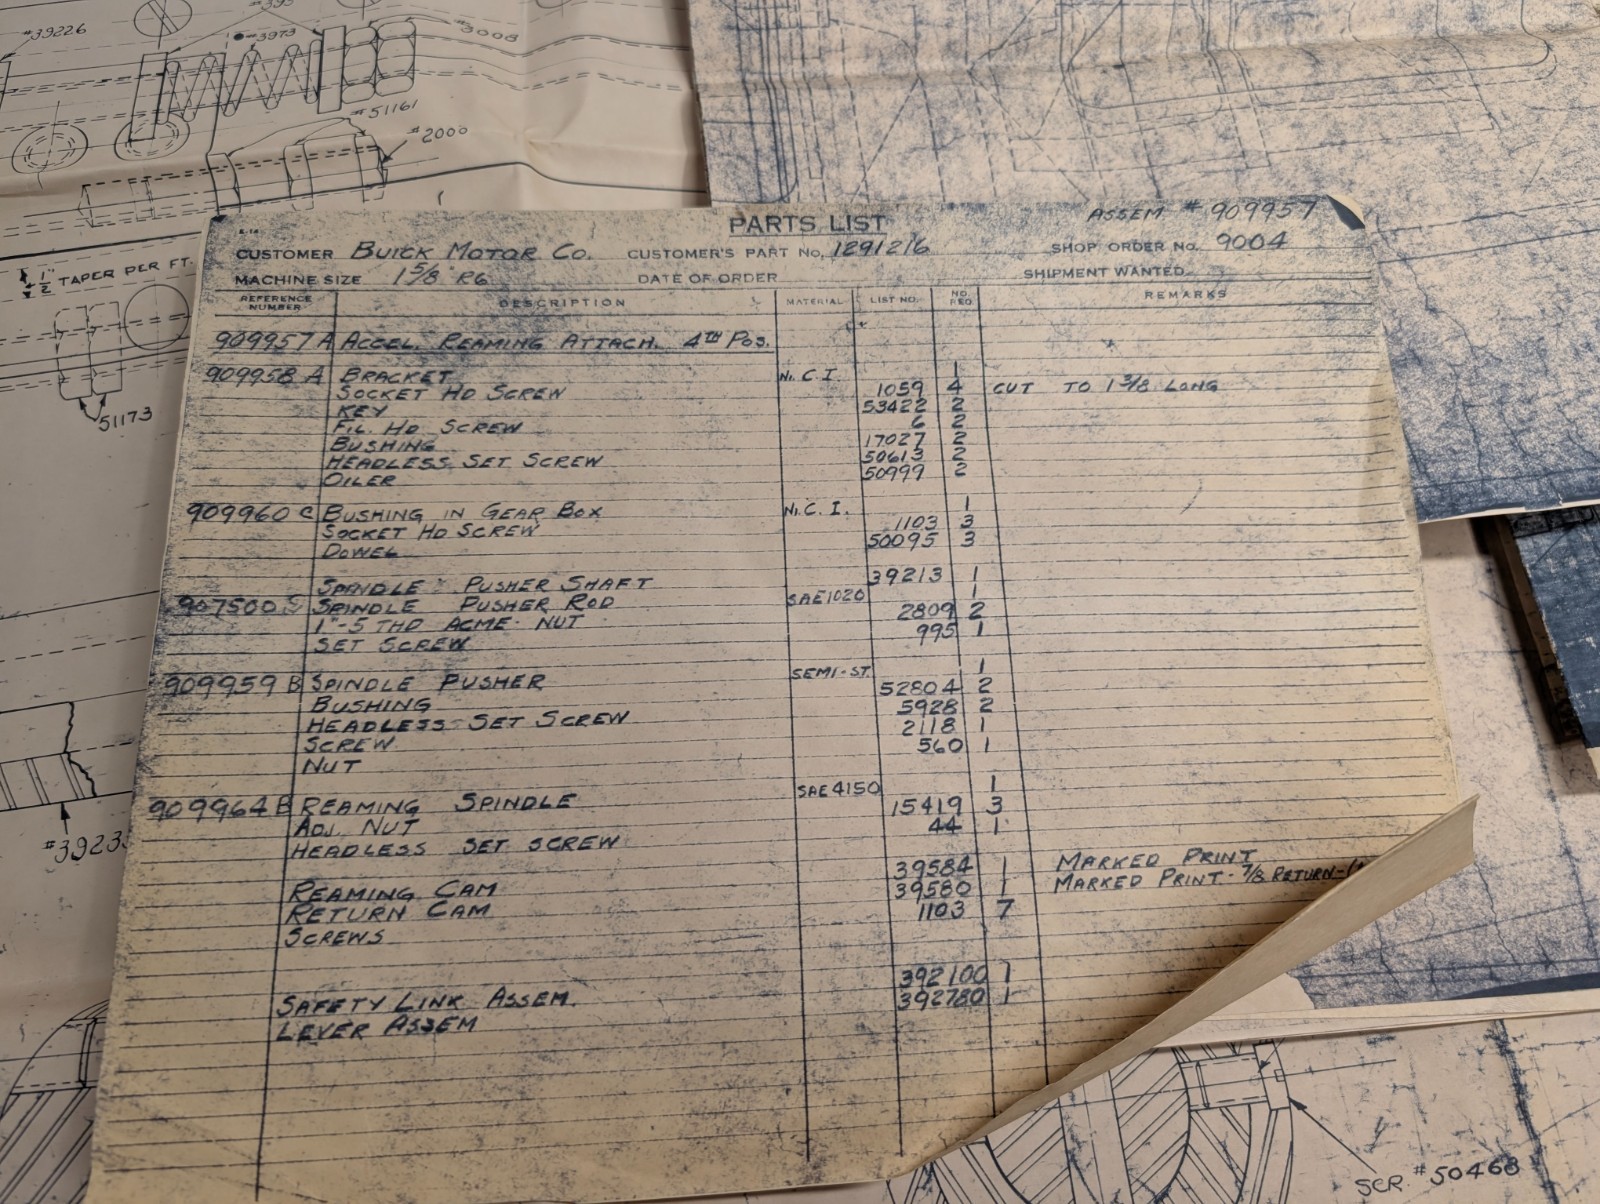 #39226
#3973
#3008
#51161
#2000
1/2" TAPER PER FT.
51173
PARTS LIST
ASSEM # 909957
CUSTOMER BUICK MOTOR CO. CUSTOMER'S PART NO. 1291216 SHOP ORDER NO. 9004
MACHINE SIZE 1 5/8" R6 DATE OF ORDER SHIPMENT WANTED
REFERENCE NUMBER DESCRIPTION MATERIAL LIST NO. NO. REQ REMARKS
909957 A ACCEL. REAMING ATTACH. 4TH POS.
909958 A BRACKET Ni. C. I. 1
SOCKET HD SCREW 1059 4 CUT TO 1 3/8 LONG
KEY 53422 2
FIL. HD SCREW 6 2
BUSHING 17027 2
HEADLESS SET SCREW 50613 2
OILER 50999 2
909960 C BUSHING IN GEAR BOX Ni. C. I. 1
SOCKET HD SCREW 1103 3
DOWEL 50095 3
SPINDLE PUSHER SHAFT 39213 1
907500 S SPINDLE PUSHER ROD SAE1020 1
1"-5 THD ACME NUT 2809 2
SET SCREW 995 1
909959 B SPINDLE PUSHER SEMI-ST. 1
BUSHING 52804 2
HEADLESS SET SCREW 5928 2
SCREW 2118 1
NUT 560 1
909964 B REAMING SPINDLE SAE 4150 1
ADJ. NUT 15419 3
HEADLESS SET SCREW 44 1
REAMING CAM 39584 1 MARKED PRINT
RETURN CAM 39580 1 MARKED PRINT - 7/8 RETURN
SCREWS 1103 7
SAFETY LINK ASSEM. 392100 1
LEVER ASSEM 392780 1
#3923
SCR. #50468